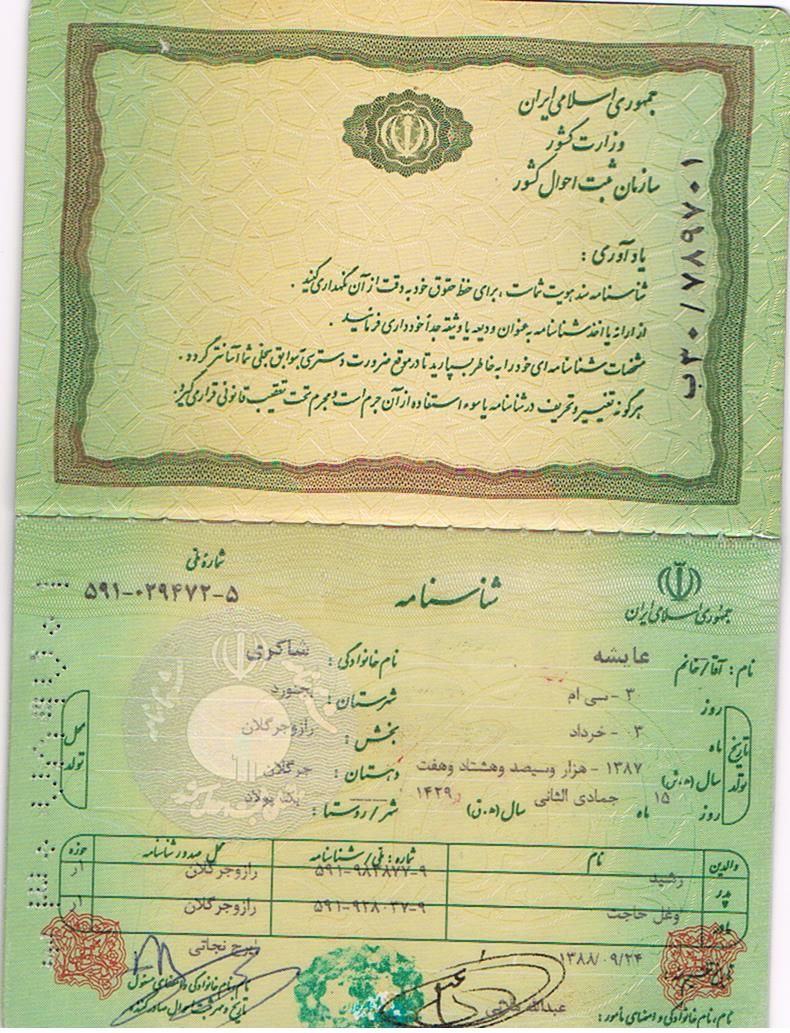 جمهوری اسلامی ایران
وزارت کشور
سازمان ثبت احوال کشور
ب۳۰/۷۸۹۷۰۱
یادآوری :
شناسنامه سند هویت شماست ، برای حفظ حقوق خود به دقت از آن نگهداری کنید .
از ارائه یا اخذ شناسنامه به عنوان ودیعه یا وثیقه جداً خودداری فرمائید .
مشخصات شناسنامه ای خود را به خاطر بسپارید تا در موقع ضرورت دسترسی به سوابق سجلی شما آسانتر گردد .
هرگونه تغییر و تحریف در شناسنامه یا سوء استفاده از آن جرم است و مجرم تحت تعقیب قانونی قرار می گیرد.
جمهوری اسلامی ایران
شناسنامه
شماره ملی
۵۹۱-۰۲۹۴۷۲-۵
نام : آقا/خانم عایشه نام خانوادگی : شاکری
تاریخ تولد
روز ۳ - سی ام شهرستان : بجنورد
ماه ۰۳ - خرداد بخش : رازوجرگلان
سال (ه.ش) ۱۳۸۷ - هزار وسیصد وهشتاد وهفت دهستان : جرگلان
روز ۱۵ ماه جمادی الثانی سال (ه.ق) ۱۴۲۹ شهر/روستا : یکه پولاد
محل تولد
والدین نام شماره ملی/شناسنامه محل صدور شناسنامه حوزه
پدر رشید ۵۹۱-۹۸۳۸۷۷-۹ رازوجرگلان
مادر اوغل حاجت ۵۹۱-۹۲۸۰۳۷-۹ رازوجرگلان
۱۳۸۸/۰۹/۲۴
ایرج نجاتی
نام، نام خانوادگی و امضای مسئول
نام، نام خانوادگی و امضای مأمور :
عبدالله